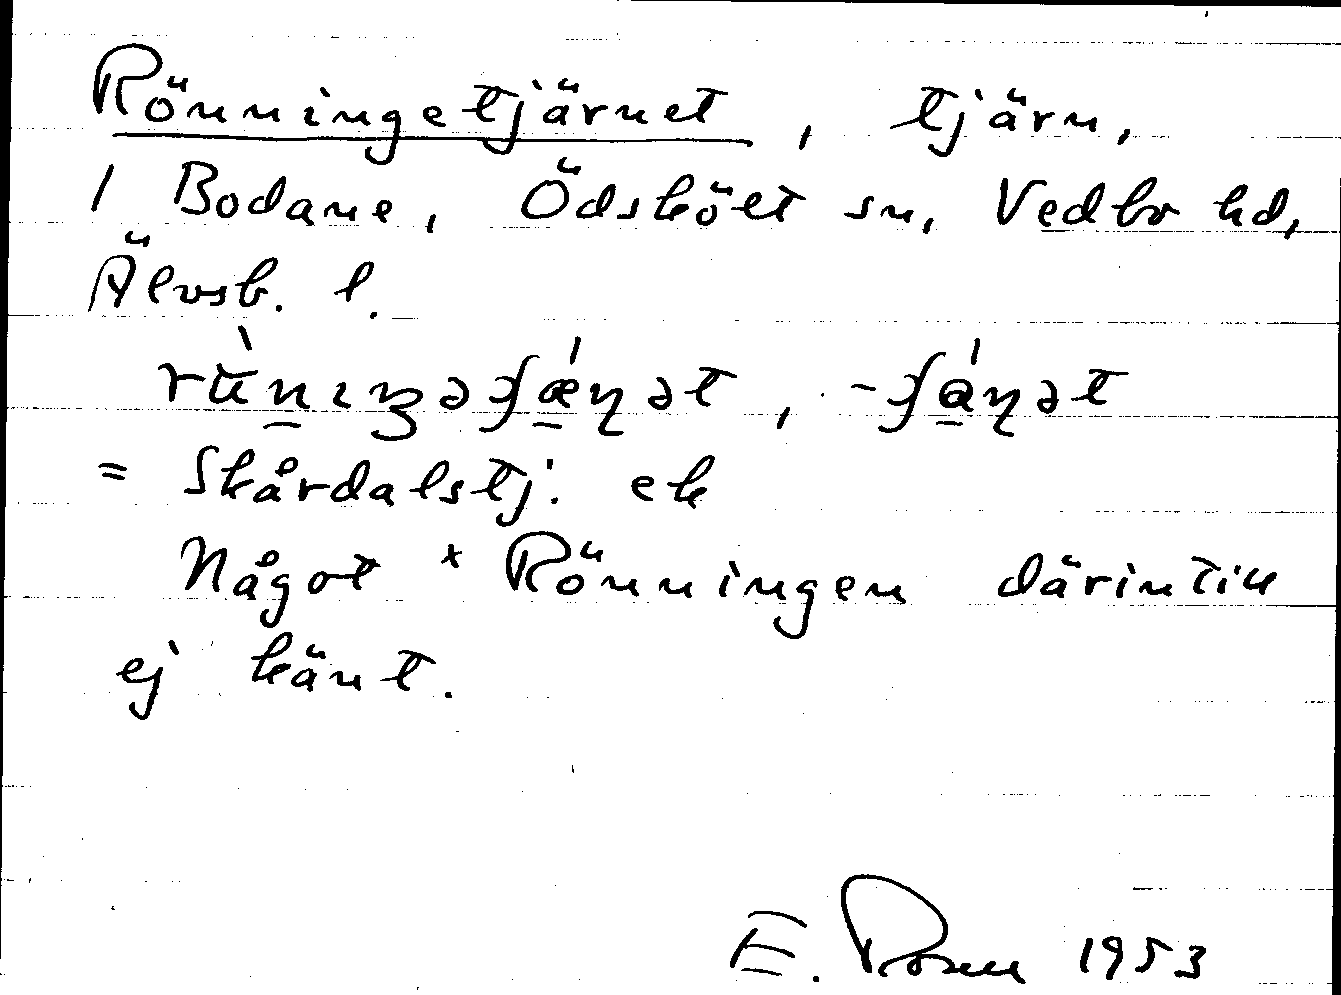 Rönningetjärnet, tjärn,
1 Bodane, Ödskölt sn, Vedbo hd,
Älvsb. l.
= Skårdalstj. ek
Något * Rönningen därintill
ej känt.
E. Rosell 1953